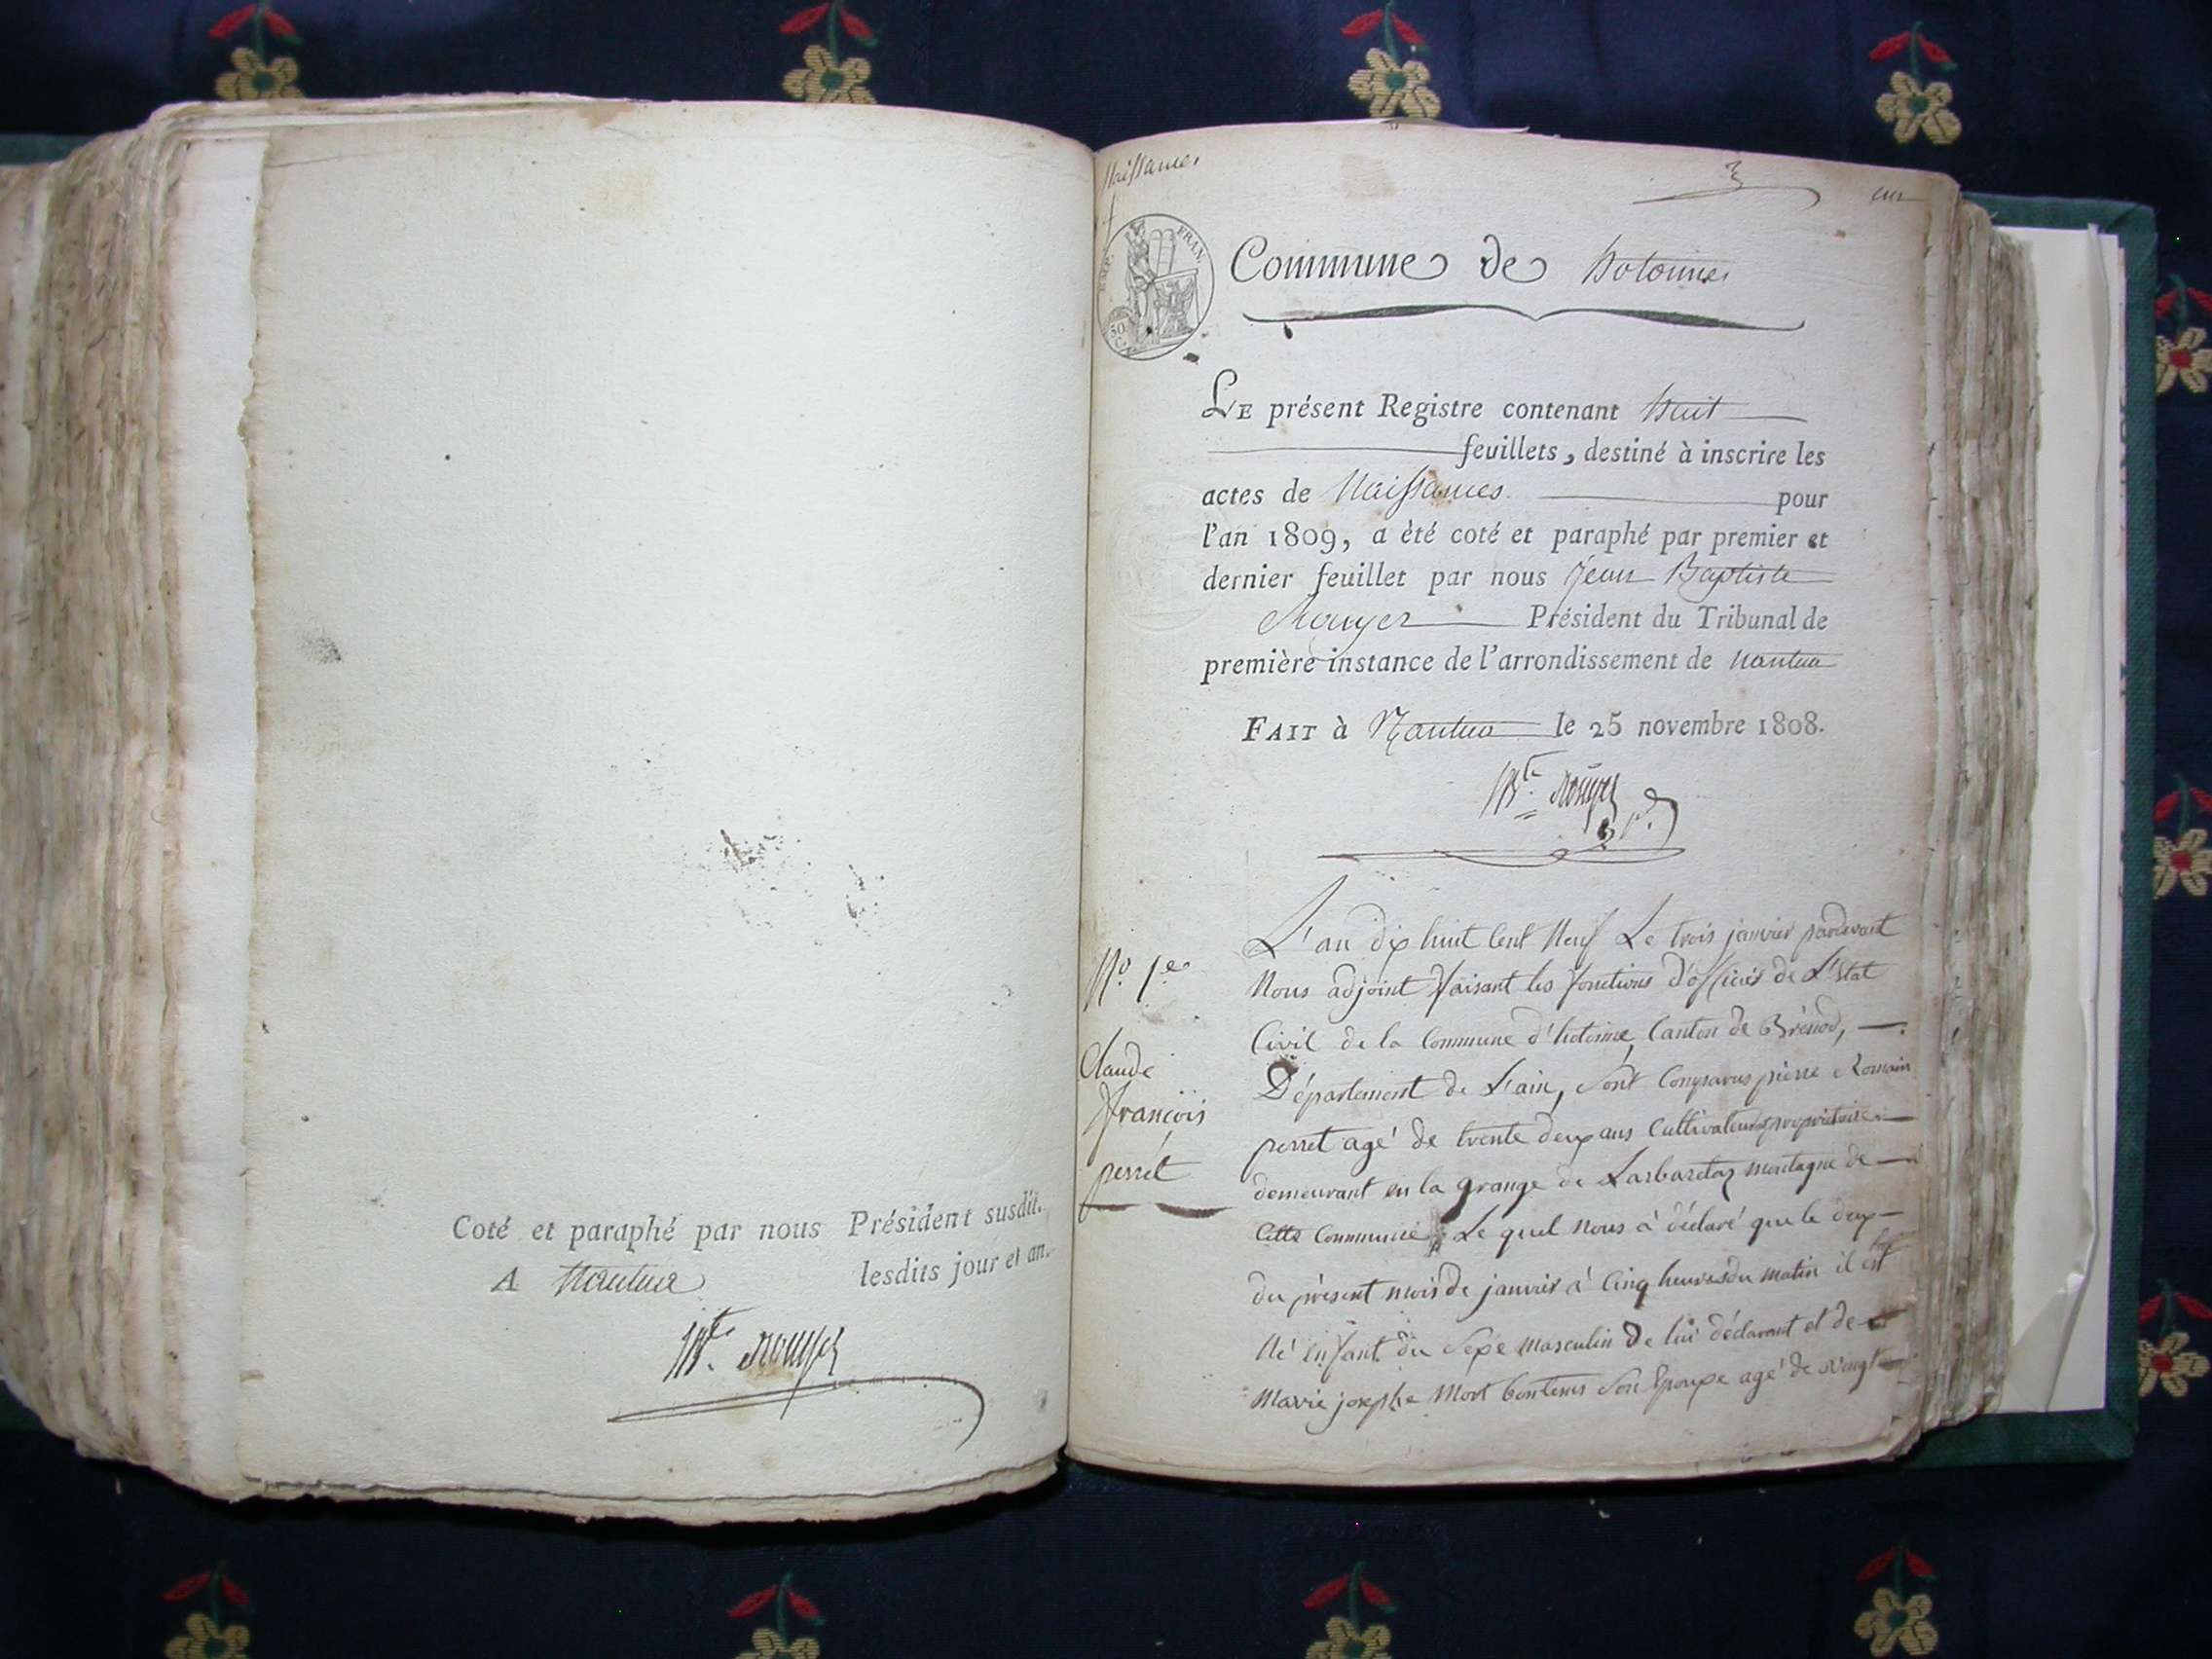 Coté et paraphé par nous Président susdit.
A Nantua lesdits jour et an.
Bte. Rouyer
Naissances
EMP. FRAN.
50 C.
Commune de hotonnes
LE présent Registre contenant huit
feuillets, destiné à inscrire les
actes de Naissances pour
l'an 1809, a été coté et paraphé par premier et
dernier feuillet par nous Jean Baptiste
Rouyer Président du Tribunal de
première instance de l'arrondissement de nantua
FAIT à Nantua le 25 novembre 1808.
Bte. Rouyer
No. 1er
Claude
françois
perret
L'an dix huit Cent Neuf Le trois janvier pardevant
Nous adjoint faisant les fonctions d'officier de L'Etat
Civil de la Commune d'hotonne, Canton de Brénod,
Département de L'ain, Sont Comparus pierre Romain
perret agé de trente deux ans Cultivateur propriétaire
demeurant en la grange de montagne de
Cette Commune Le quel Nous à déclaré que le deux
du présent mois de janvier à Cinq heures du matin il est
Né enfant du Sexe Masculin De lui déclarant et de
Marie josephe Mort Son Epouse agé de vingt